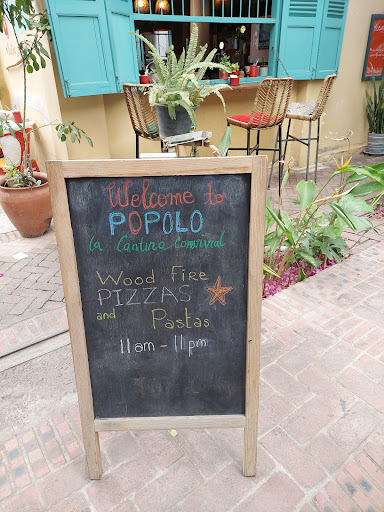 Welcome to
POPOLO
la Cantina Conviviale
Wood Fire
PIZZAS
and Pastas
11am - 11pm